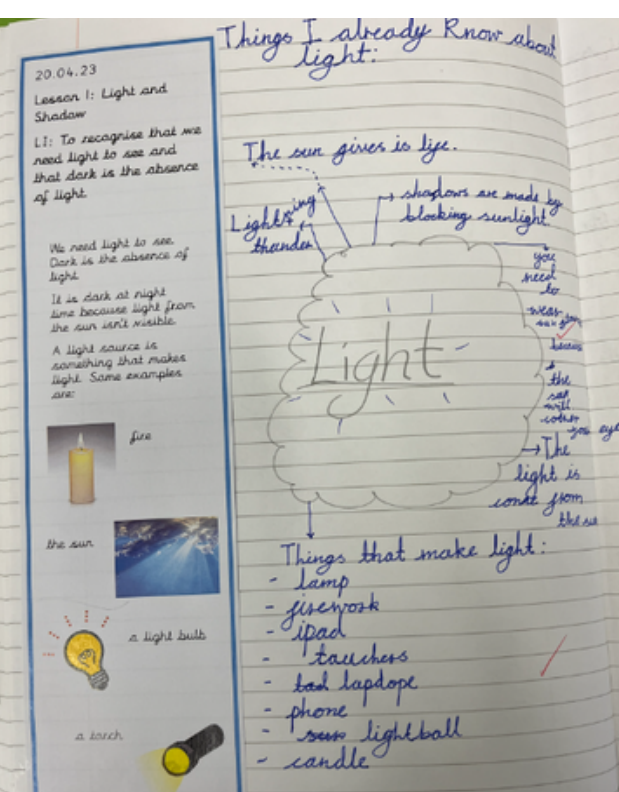 20.04.23
Lesson 1: Light and
Shadow
LI: To recognise that we
need light to see and
that dark is the absence
of light.
We need light to see.
Dark is the absence of
light.
It is dark at night
time because light from
the sun isn't visible.
A light source is
something that makes
light. Some examples
are:
fire
the sun
a light bulb
a torch
Things I already Know about
light:
The sun gives is life.
thunder
shadows are made by
blocking sunlight.
you
need
to
wear
the
Light
The
light is
from
Things that make light:
- lamp
- firework
- ipad
- tauchers
- lapdope
- phone
- lightball
- candle